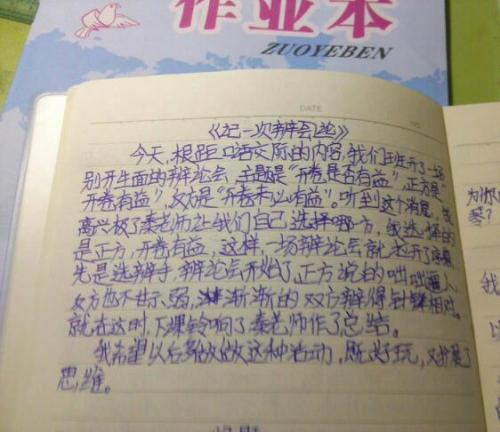 作业本
ZUOYEBEN
DATE
NO.
《记一次辩论》
今天,根距口语交际的内容,我们班开了一场
别开生面的辩论会,主题是“开卷是否有益”,正方是
开卷有益”,反方是“开卷未必有益”。听到这个消息,我
高兴极了秦老师让我们自己选择哪方,我选择的
是正方,开卷有益,这样,一场辩论会就拉开了
先是选辩手,辩论会开始了,正方说的咄咄逼人,
反方也不甘示弱,渐渐的双方辩得针锋相对。
就在这时,下课铃响了秦老师作了总结。
我希望以后多做做这种活动,既好玩,又扩展了
思维。
为
琴?
我